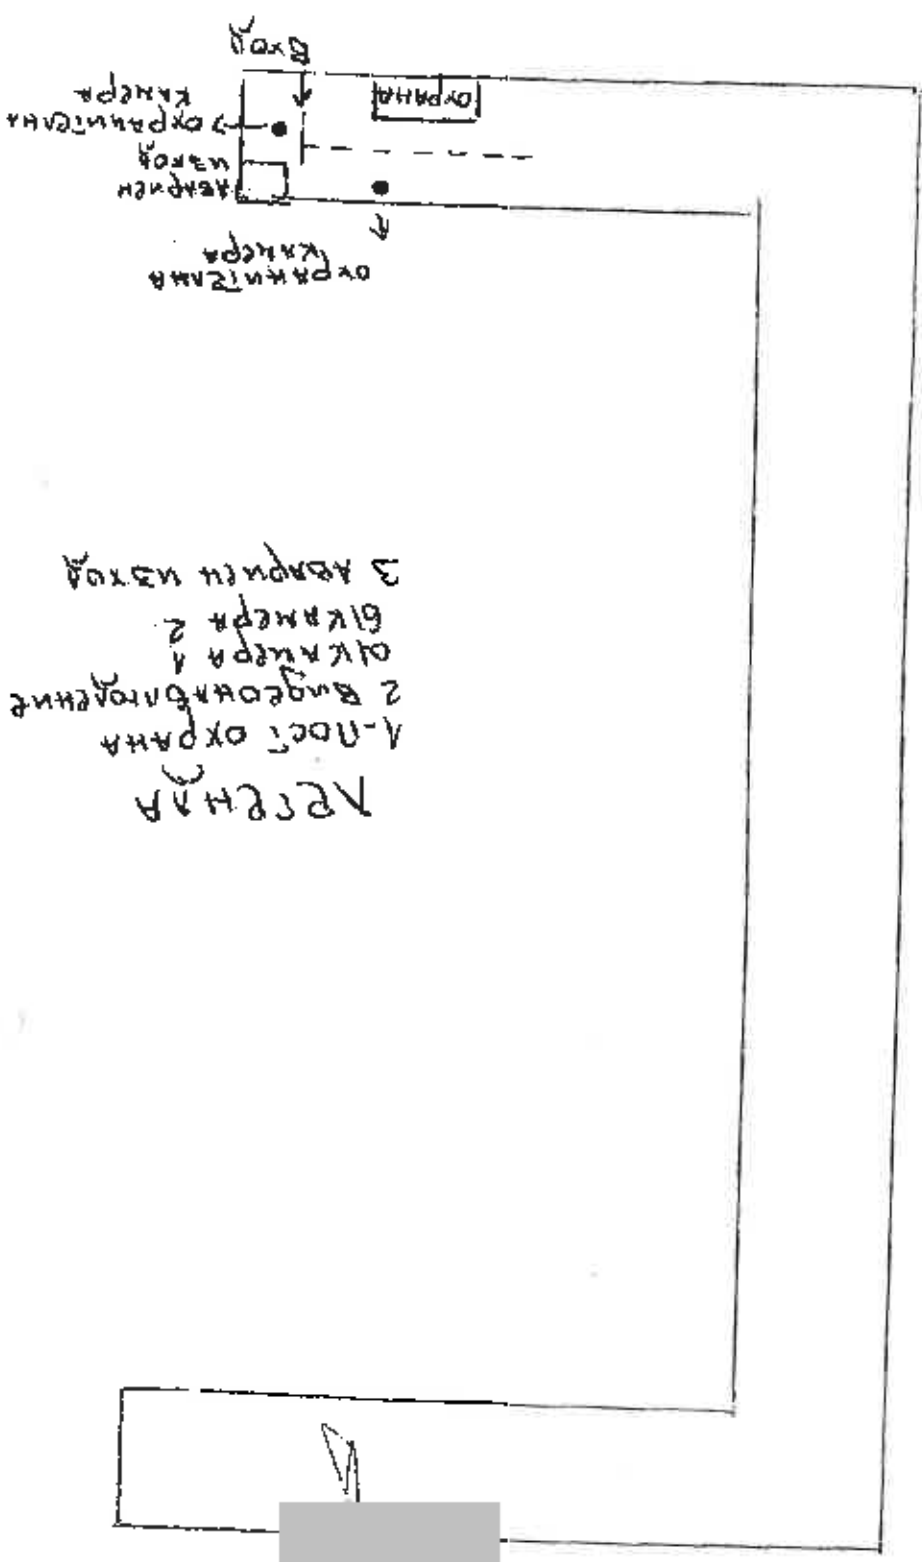 ЛЕГЕНДА
1-ПОСТ ОХРАНА
2 ВИДЕОНАБЛЮДЕНИЕ
а/КАМЕРА 1
б/КАМЕРА 2
3 АВАРИЕН ИЗХОД
ОХРАНИТЕЛНА
КАМЕРА
АВАРИЕН
ИЗХОД
ОХРАНИТЕЛНА
КАМЕРА
ОХРАНА
ВХОД